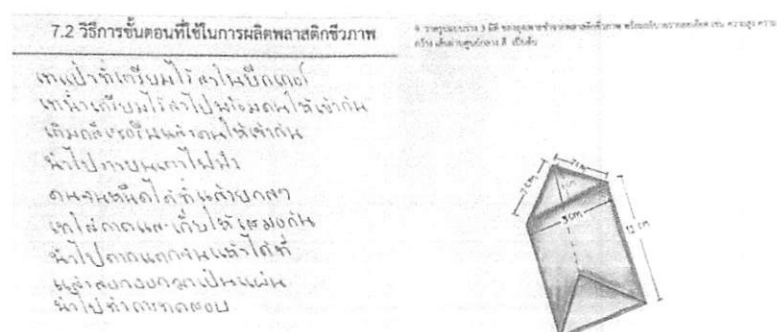 7.2 วิธีการขั้นตอนที่ใช้ในการผลิตพลาสติกชีวภาพ
เทแป้งที่เตรียมไว้ลงในบีกเกอร์
เทน้ำเตรียมไว้ลงไปพร้อมคนให้เข้ากัน
เติมกลีเซอรีนแล้วคนให้เข้ากัน
นำไปวางบนเตาไฟฟ้า
คนจนหนืดได้ที่แล้วยกลง
เทใส่ถาดและเกลี่ยให้เสมอกัน
นำไปตากแดดจนแห้งได้ที่
แล้วลอกออกมาเป็นแผ่น
นำไปทำการทดสอบ
3 มิติ
กว้าง เส้นผ่านศูนย์กลาง สี เป็นต้น
7cm
7cm
3cm
12 cm